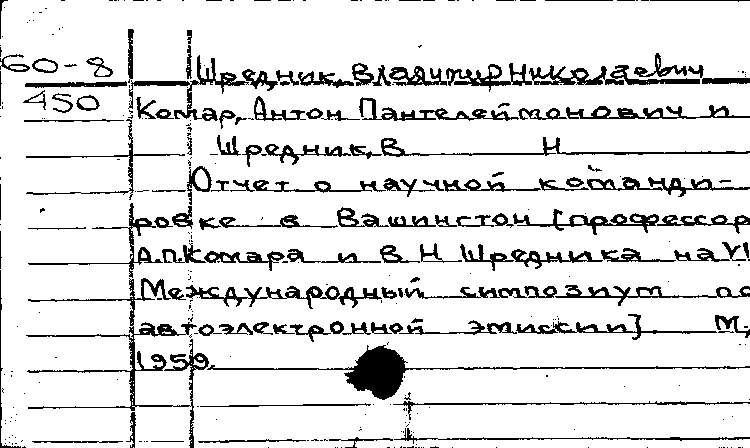 60-8 Шредник, Владимир Николаевич
450 Комар, Антон Пантелеймонович и
Шредник, В Н
Отчет о научной команди-
ровке в Вашингтон [профессор
А.П. Комара и В Н Шредника на VI
Международный симпозиум по
автоэлектронной эмиссии] М,
1959.